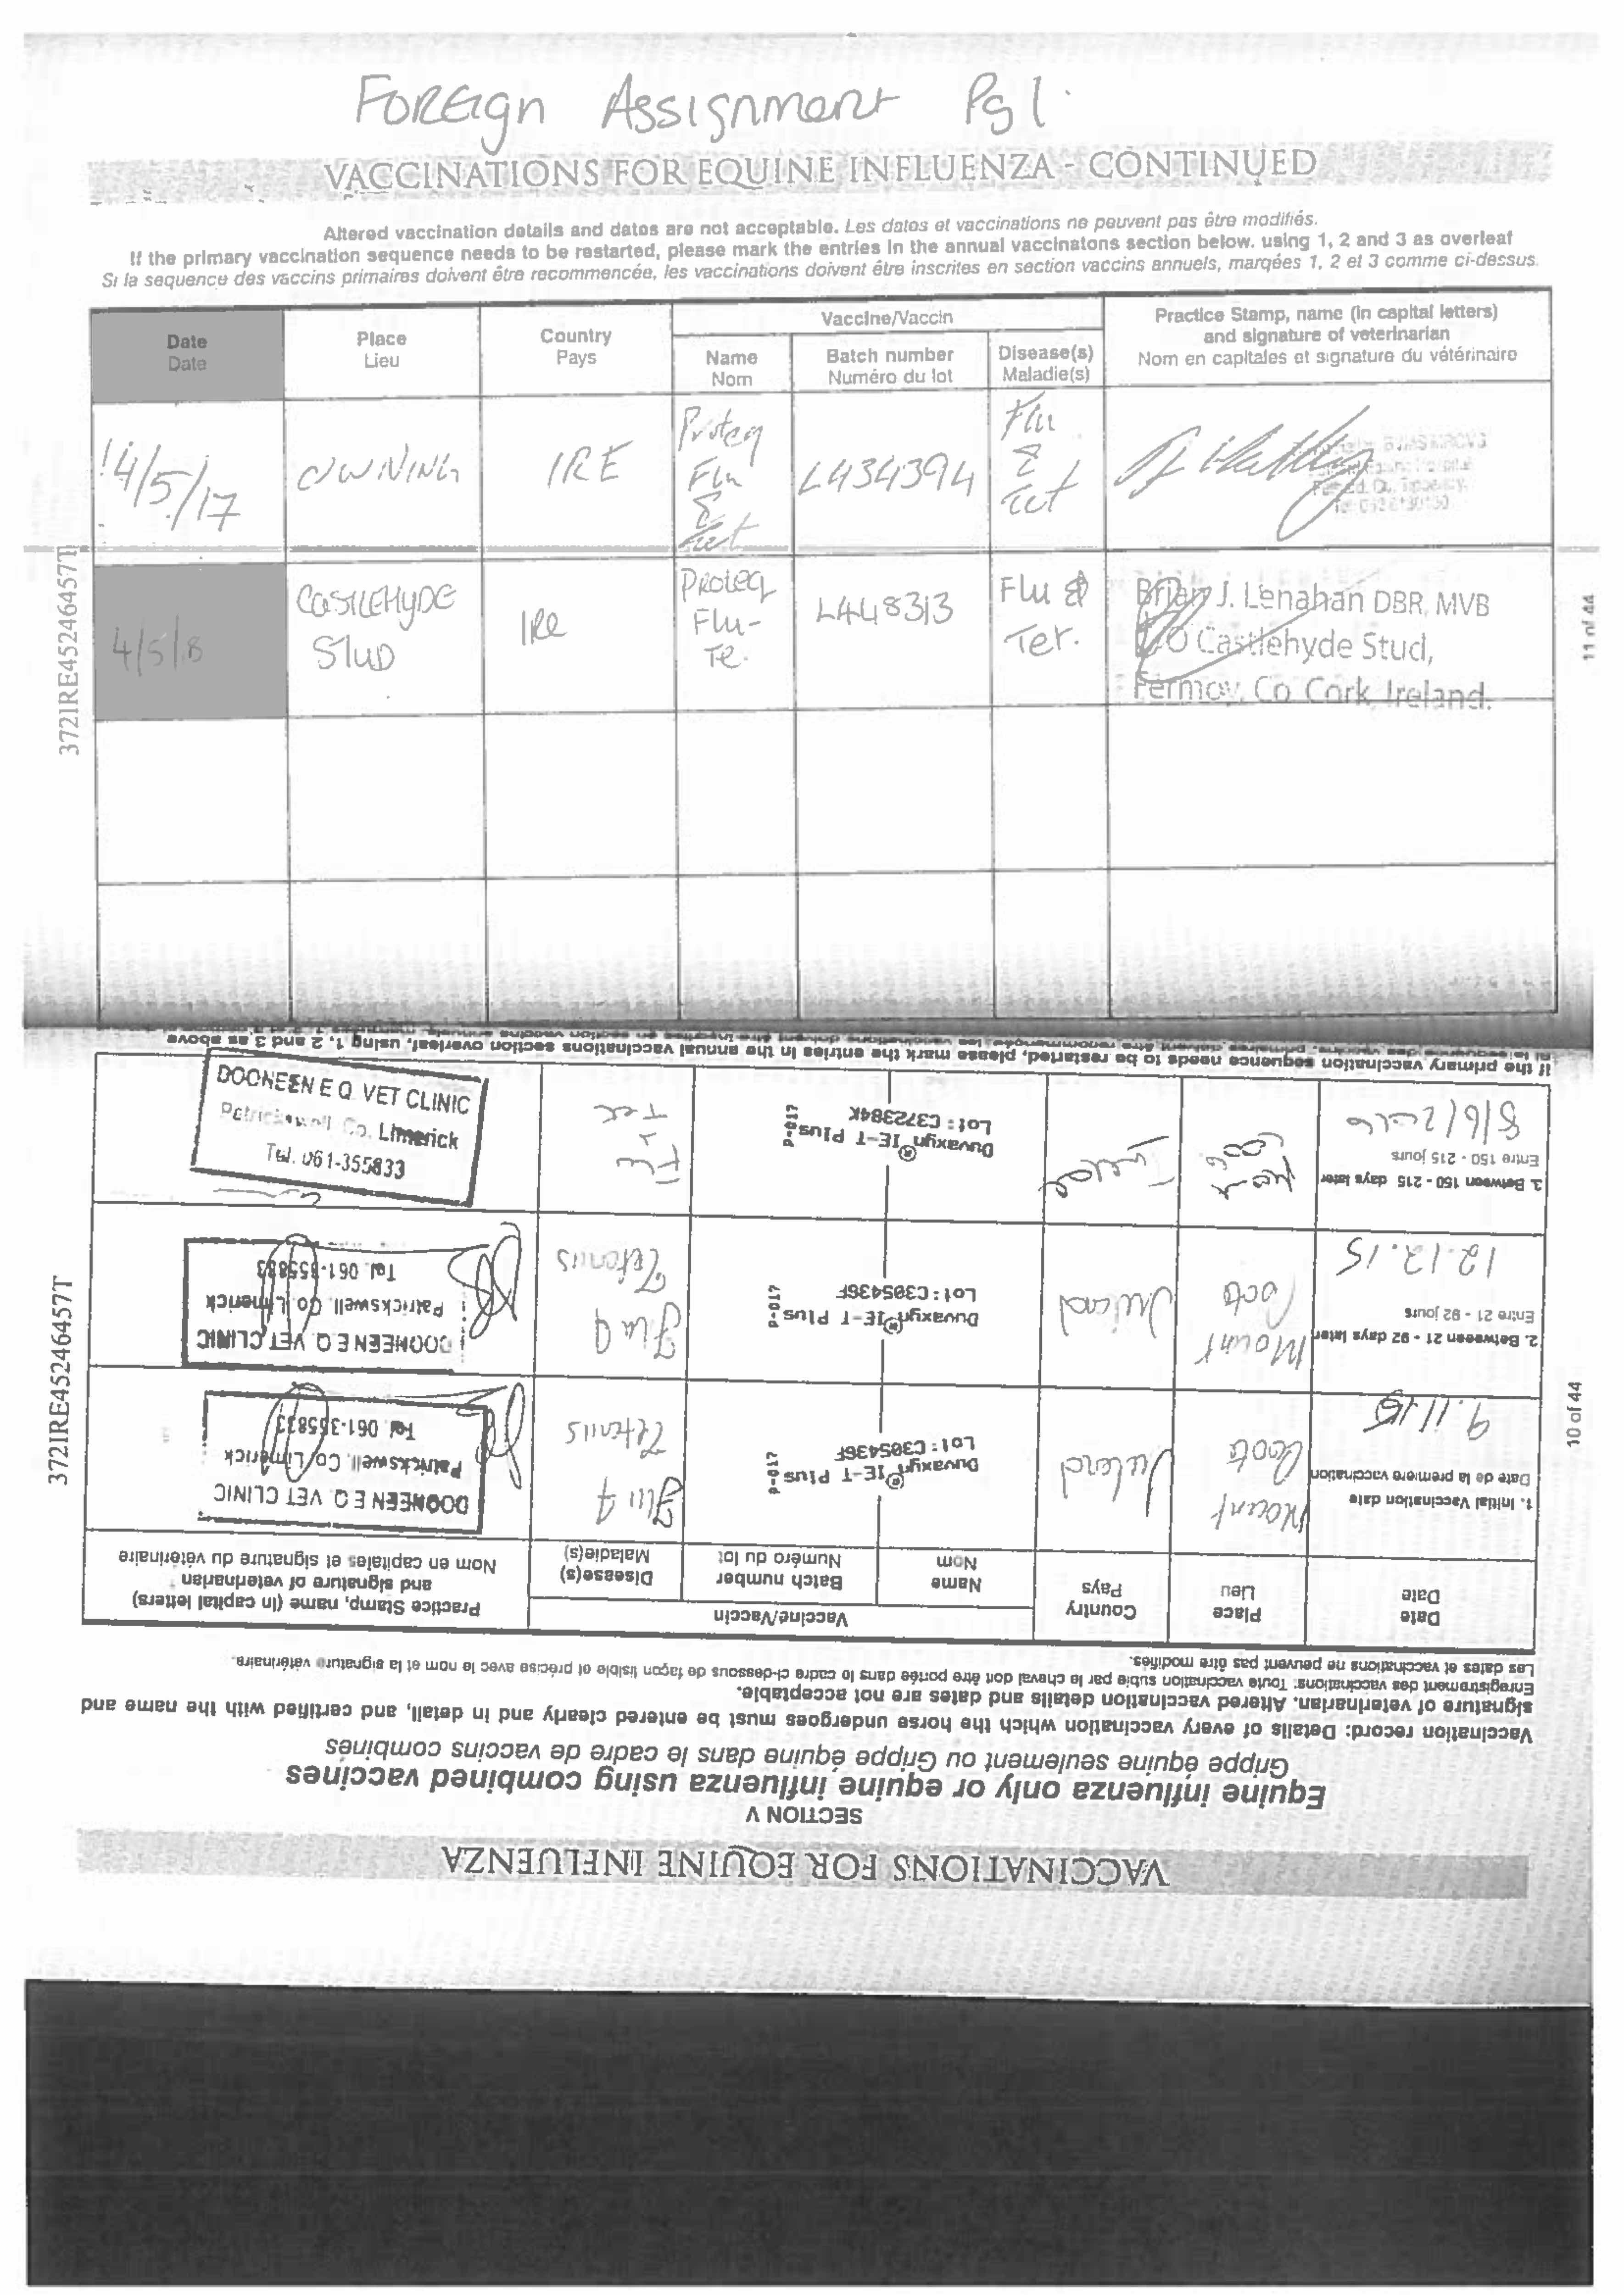 FOREIgn Assignment Pg 1.
VACCINATIONS FOR EQUINE INFLUENZA - CONTINUED
Altered vaccination details and dates are not acceptable. Les dates et vaccinations ne peuvent pas être modifiés.
If the primary vaccination sequence needs to be restarted, please mark the entries in the annual vaccinatons section below. using 1, 2 and 3 as overleaf
Si la sequence des vaccins primaires doivent être recommencée, les vaccinations doivent être inscrites en section vaccins annuels, marqées 1, 2 et 3 comme ci-dessus.
Date
Date
Place
Lieu
Country
Pays
Vaccine/Vaccin
Name
Nom
Batch number
Numéro du lot
Disease(s)
Maladie(s)
Practice Stamp, name (in capital letters)
and signature of veterinarian
Nom en capitales et signature du vétérinaire
14/5/17
OWNING
IRE
Proteq
Flu
&
Tet
L434394
Flu
&
Tet
4/5/18
CASTLEHYDE
STUD
IRe
PROteq
Flu-
Te.
L448313
Flu &
Tet.
Brian J. Lenahan DBR, MVB
C/O Castlehyde Stud,
Fermoy, Co Cork, Ireland.
372IRE45246457T
11 of 44
VACCINATIONS FOR EQUINE INFLUENZA
SECTION V
Equine influenza only or equine influenza using combined vaccines
Grippe équine seulement ou Grippe équine dans le cadre de vaccins combinés
Vaccination record: Details of every vaccination which the horse undergoes must be entered clearly and in detail, and certified with the name and
signature of veterinarian. Altered vaccination details and dates are not acceptable.
Enregistrement des vaccinations: Toute vaccination subie par le cheval doit être portée dans le cadre ci-dessous de façon lisible et précise avec le nom et la signature vétérinaire.
Les dates et vaccinations ne peuvent pas être modifiés.
Date
Date
Place
Lieu
Country
Pays
Vaccine/Vaccin
Name
Nom
Batch number
Numéro du lot
Disease(s)
Maladie(s)
Practice Stamp, name (in capital letters)
and signature of veterinarian
Nom en capitales et signature du vétérinaire
1. Initial Vaccination date
Date de la premiere vaccination
9.11.15
Mount
Coote
Ireland
Duvaxyn® IE-T Plus
Lot: C305436F
P-017
Flu &
Tetanus
DOONEEN E.Q. VET CLINIC
Patrickswell, Co. Limerick
Tel. 061-355833
2. Between 21 - 92 days later
Entre 21 - 92 jours
12.12.15
Mount
Coote
Ireland
Duvaxyn® IE-T Plus
Lot: C305436F
P-017
Flu &
Tetanus
DOONEEN E.Q. VET CLINIC
Patrickswell, Co. Limerick
Tel. 061-355833
3. Between 150 - 215 days later
Entre 150 - 215 jours
8/6/2016
Duvaxyn® IE-T Plus
Lot: C372384K
P-017
Flu
Tet
DOONEEN E Q. VET CLINIC
Patrickswell Co. Limerick
Tel. 061-355833
If the primary vaccination sequence needs to be restarted, please mark the entries in the annual vaccinations section overleaf, using 1, 2 and 3 as above
372IRE45246457T
10 of 44